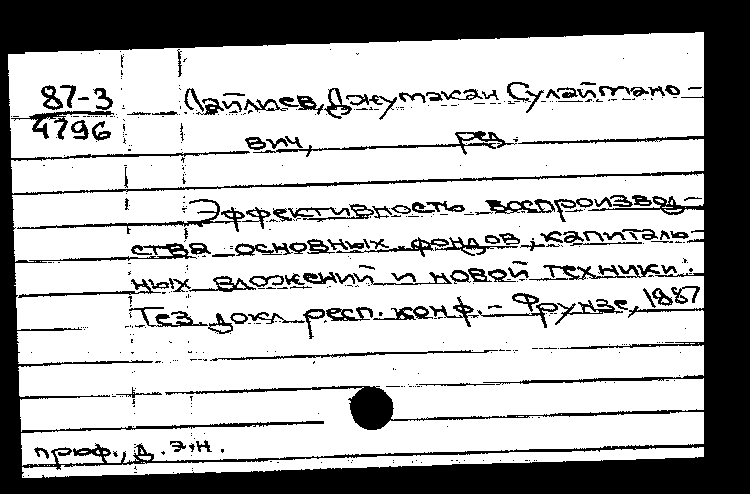 87-3
4796
Лайлиев, Джумакан Сулаймано-
вич, ред.
Эффективность воспроизвод-
ства основных фондов, капиталь-
ных вложений и новой техники:
Тез докл респ. конф. - Фрунзе, 1987
проф., д. э. н.